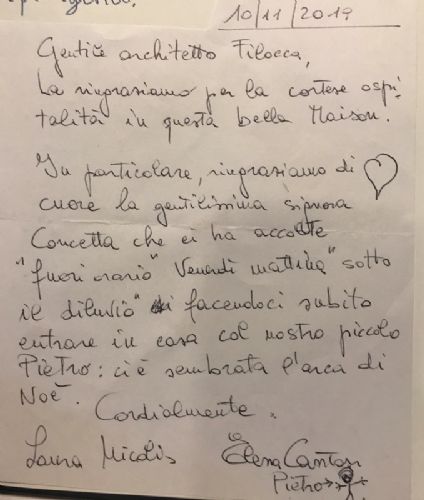 10/11/2019
Gentile architetto Filocca,
La ringraziamo per la cortese ospi-
talità in questa bella Maison.
In particolare, ringraziamo di
cuore la gentilissima signora
Concetta che ci ha accolte
"fuori orario" Venerdì mattina "sotto
il diluvio" facendoci subito
entrare in casa col nostro piccolo
Pietro: ci è sembrata l'arca di
Noè.
Cordialmente.
Laura Micolis
Elena Cantoni
Pietro →